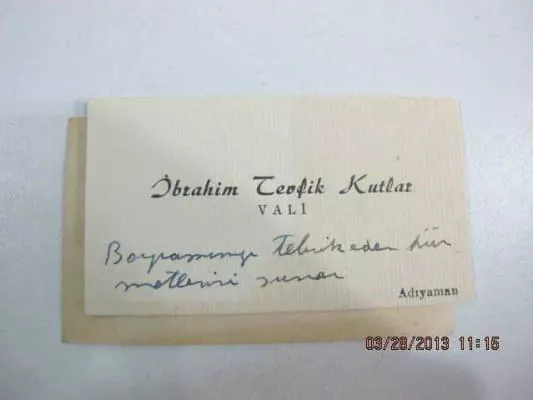 İbrahim Tevfik Kutlar
VALİ
Bayramınızı tebrik eder hür
metlerimi sunar
Adıyaman
03/28/2013 11:15